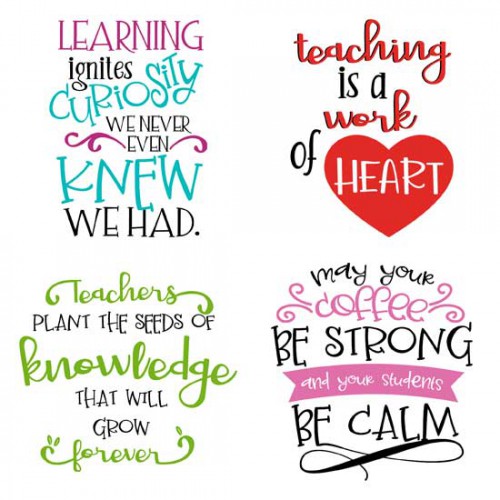 LEARNING
ignites
CURIOSITY
WE NEVER
EVEN
KNEW
WE HAD.
teaching
is a
work
of
HEART
Teachers
PLANT THE SEEDS OF
knowledge
THAT WILL
GROW
forever
may your
coffee
BE STRONG
and your students
BE CALM